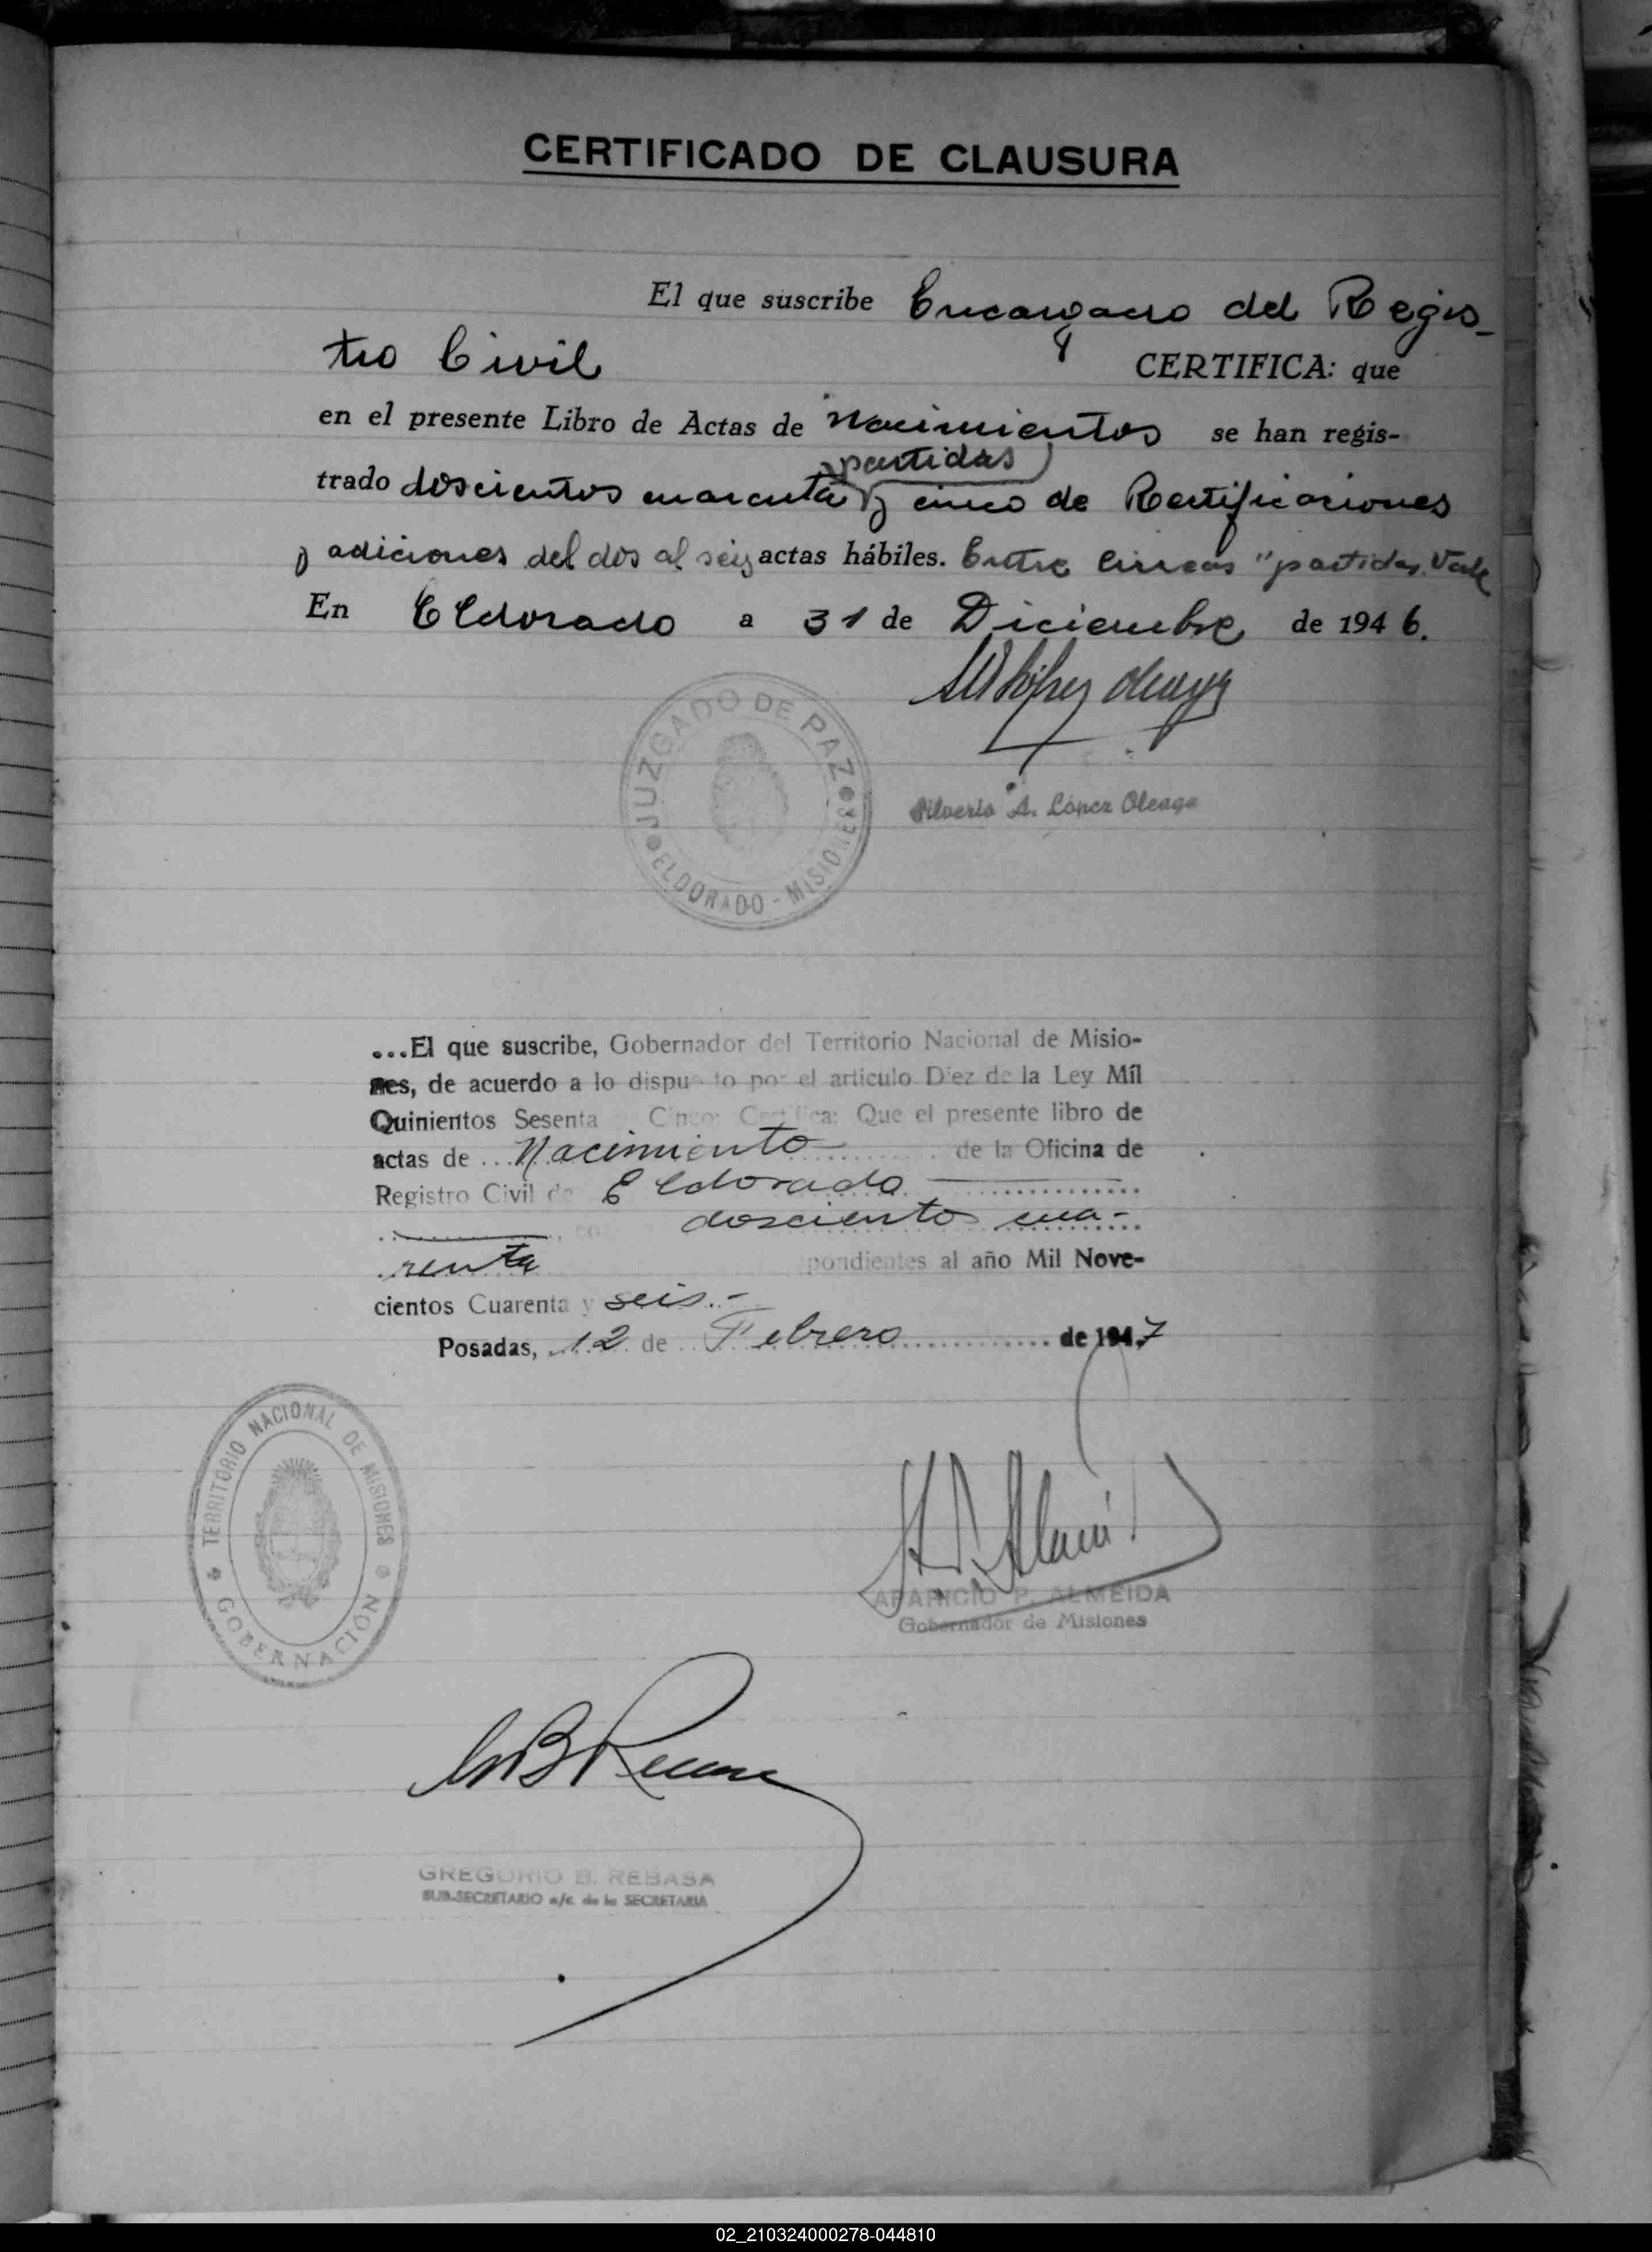 CERTIFICADO DE CLAUSURA
El que suscribe Encargado del Regis-
tro Civil CERTIFICA: que
en el presente Libro de Actas de Nacimientos se han regis-
partidas
trado doscientos cuarenta y cinco de Rectificaciones
y adiciones del dos al seis actas hábiles. Entre lineas "partidas. Vale
En Eldorado a 31 de Diciembre de 1946.
JUZGADO DE PAZ
ELDORADO - MISIONES
Silverio A. López Oleaga
...El que suscribe, Gobernador del Territorio Nacional de Misio-
nes, de acuerdo a lo dispuesto por el artículo Diez de la Ley Mil
Quinientos Sesenta Cinco: Certifica: Que el presente libro de
actas de Nacimiento de la Oficina de
Registro Civil de Eldorado
doscientos cua-
renta pondientes al año Mil Nove-
cientos Cuarenta y seis.-
Posadas, 12 de Febrero de 1947
TERRITORIO NACIONAL DE MISIONES
GOBERNACIÓN
APARICIO P. ALMEIDA
Gobernador de Misiones
GREGORIO B. REBASA
SUB-SECRETARIO a/c. de la SECRETARIA
02_210324000278-044810